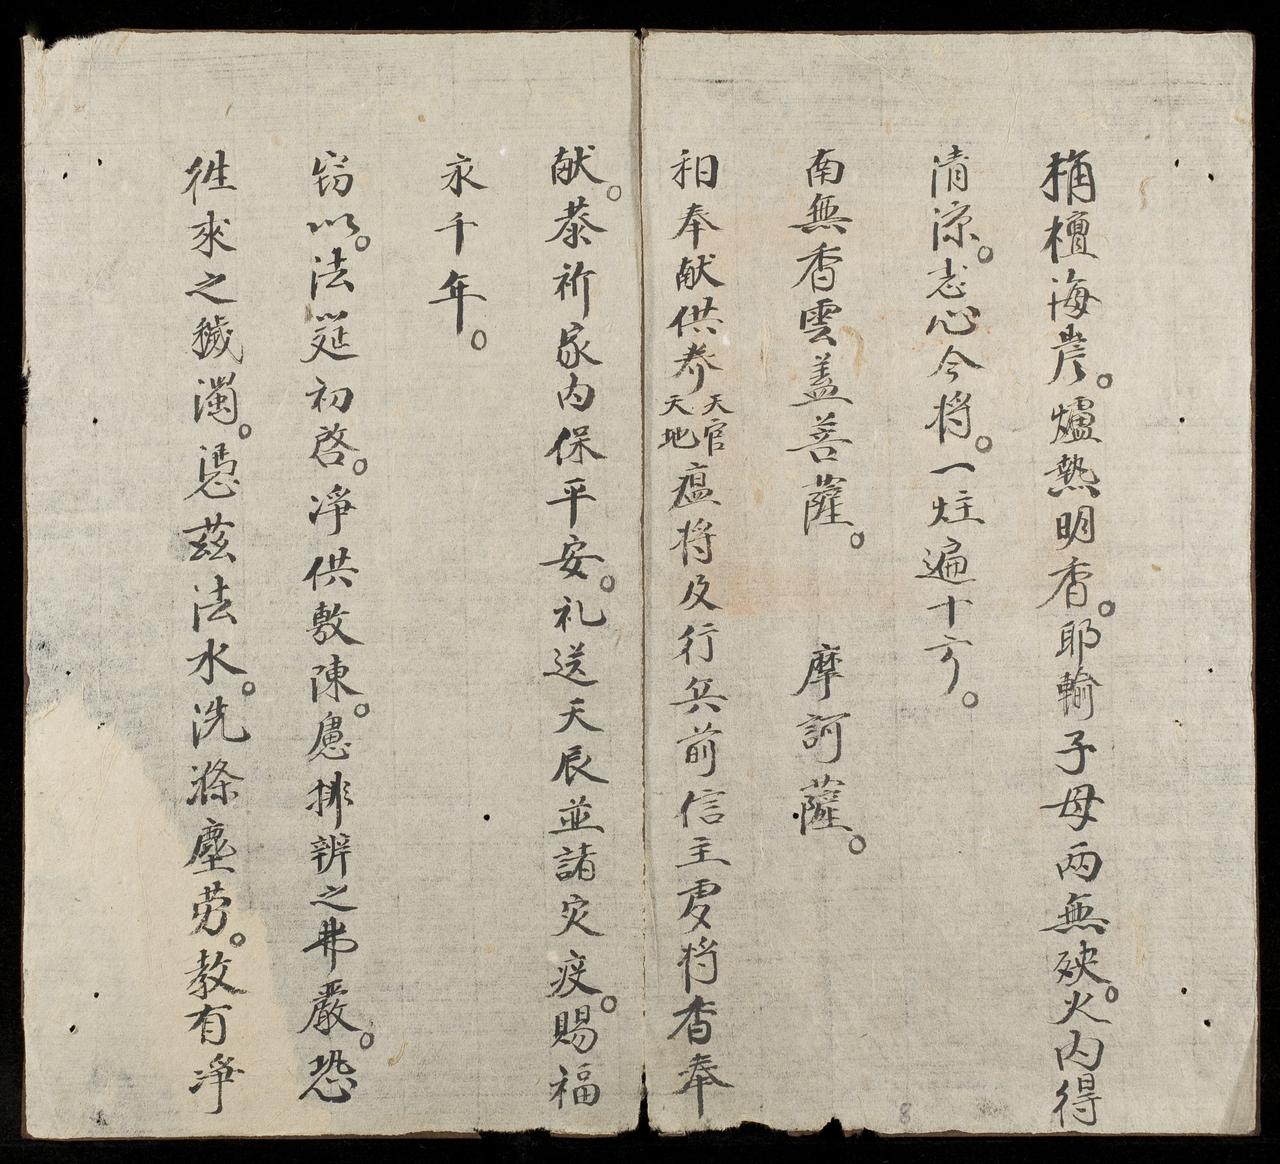 栴檀海岸。爐熱明香。耶輸子母兩無殃。火內得
清凉。志心今將。一炷遍十方。
南無香雲盖菩薩。 摩訶薩。
和奉献供养天官天地瘟将及行兵前信主虔将香奉
献。恭祈家内保平安。礼送天辰並諸灾疫。賜福
永千年。
窃以。法筵初啓。凈供敷陳。慮排辨之弗嚴。恐
徃来之穢濁。憑兹法水。洗滌塵劳。教有凈
8